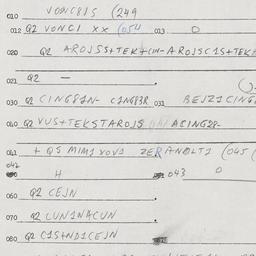 010 VONC8IS (249
012 Q2 VONCI XX (054 013 0
020 Q2 AROJSS+TEKT(IN-AROJSC1S+TEK
021 Q2 —
030 Q2 CING81N- C1NG83R 031 BEJZ1CING
040 Q2 VUS+TEKSTAROJS ACING28-
041 + QS MIM1 VOV1 ZERANOLT1 (045
042 H 043 0
060 Q2 CEJN
070 Q2 LUN1NACUN
080 Q2 C1S+ND1CEJN